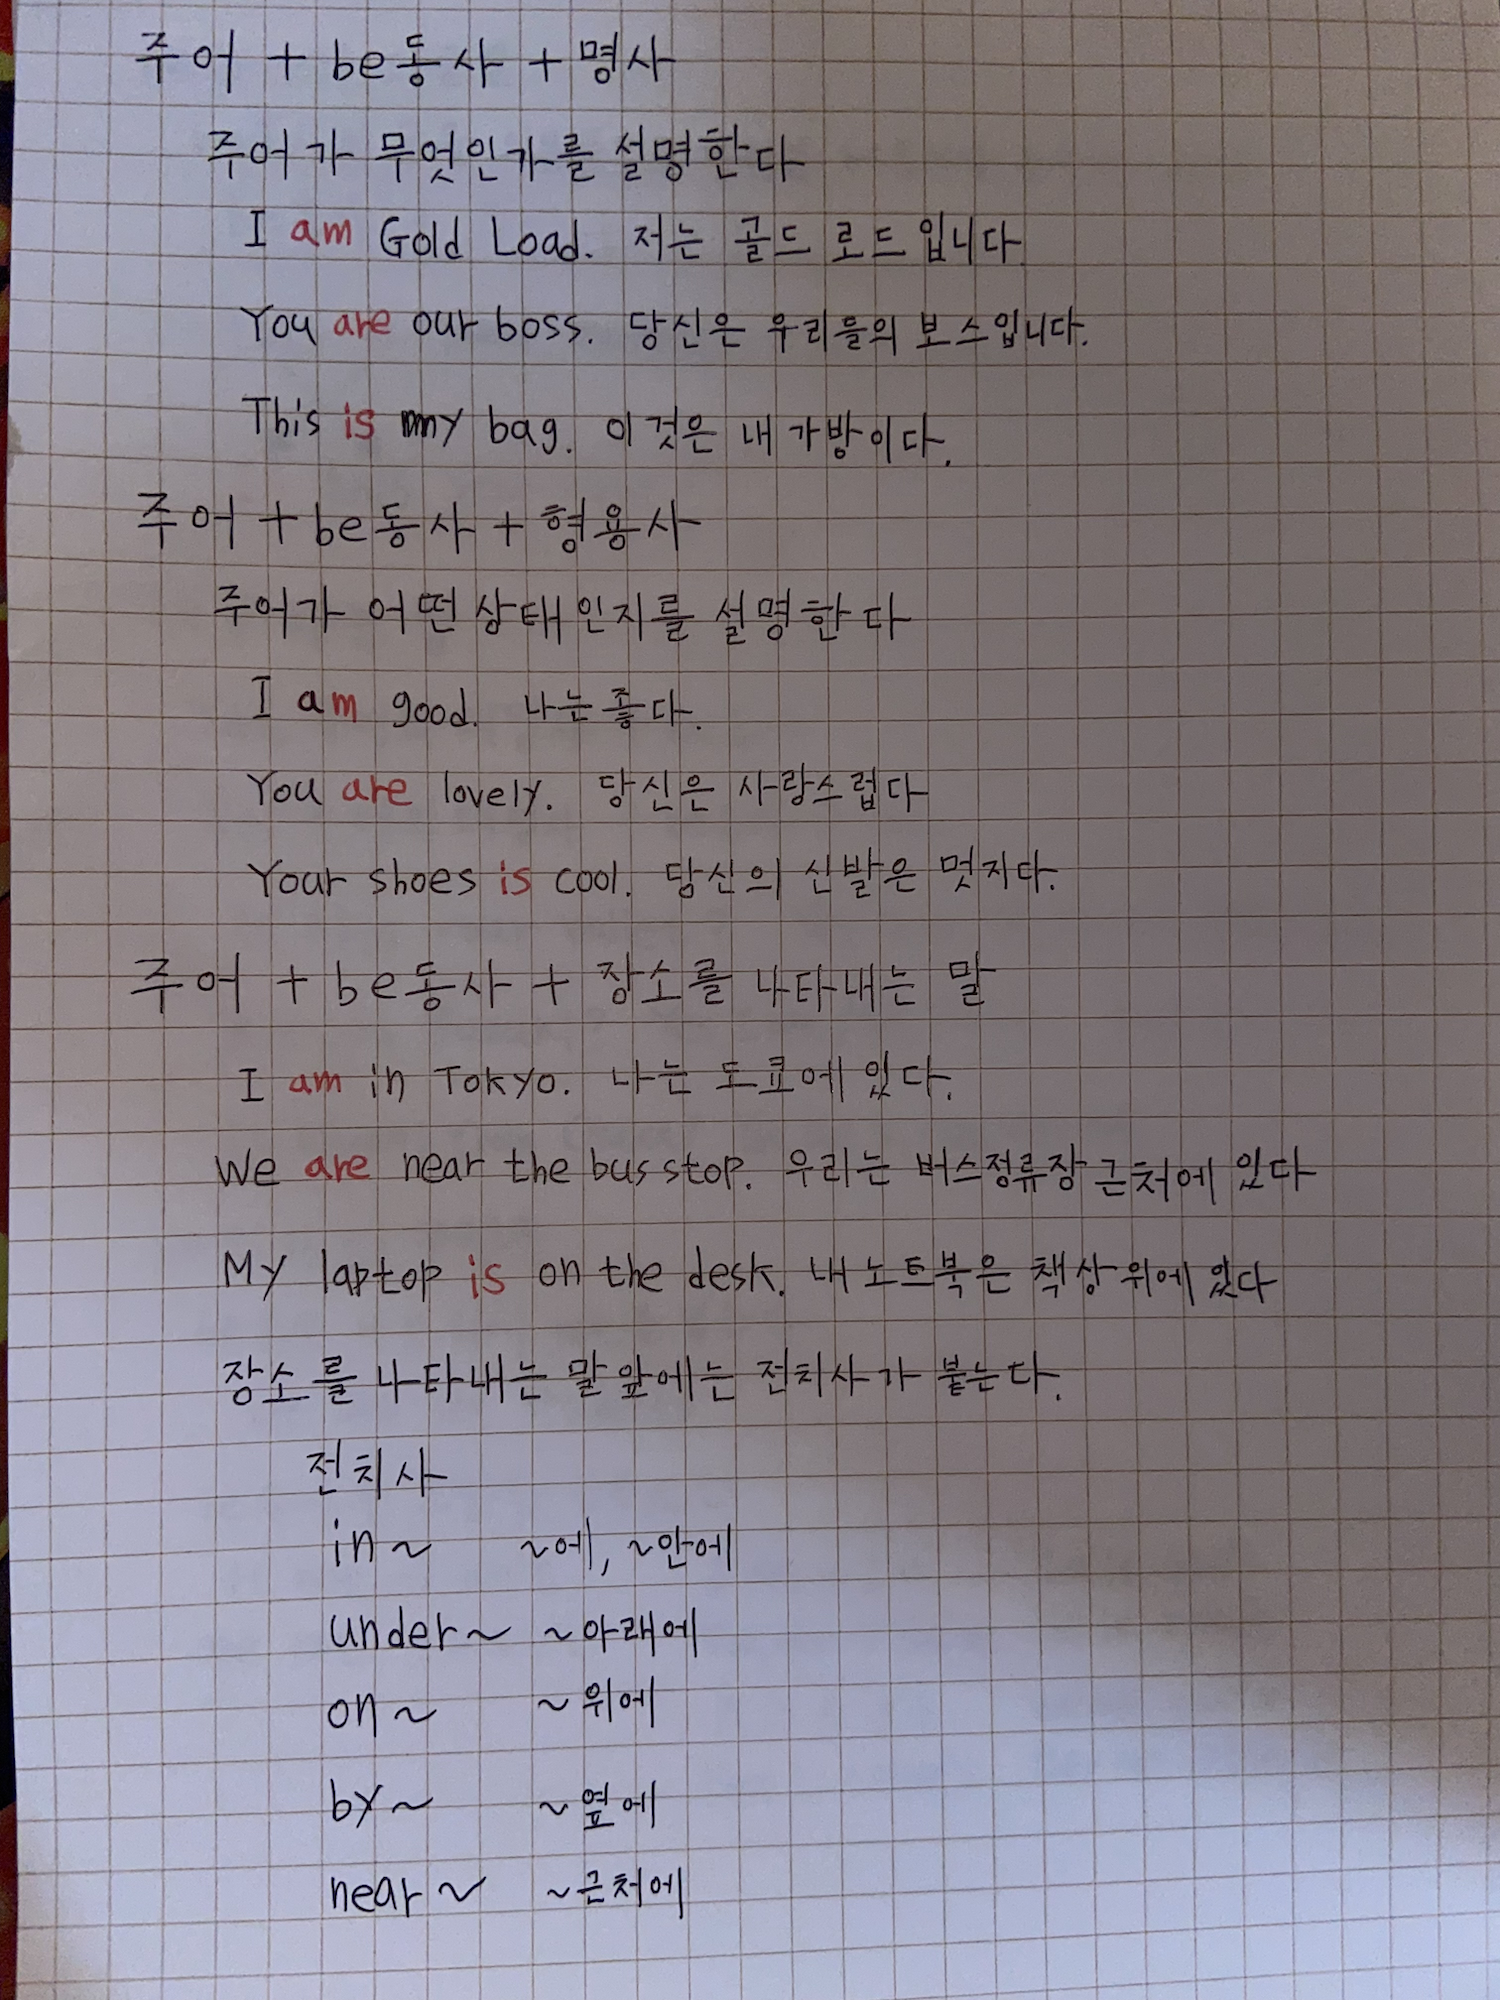 주어 + be동사 + 명사
주어가 무엇인가를 설명한다
I am Gold Load. 저는 골드 로드입니다.
You are our boss. 당신은 우리들의 보스입니다.
This is my bag. 이것은 내 가방이다.
주어 + be동사 + 형용사
주어가 어떤 상태인지를 설명한다
I am good. 나는 좋다.
You are lovely. 당신은 사랑스럽다
Your shoes is cool. 당신의 신발은 멋지다.
주어 + be동사 + 장소를 나타내는 말
I am in Tokyo. 나는 도쿄에 있다.
We are near the bus stop. 우리는 버스정류장 근처에 있다
My laptop is on the desk. 내 노트북은 책상 위에 있다
장소를 나타내는 말 앞에는 전치사가 붙는다.
전치사
in~ ~에, ~안에
under~ ~아래에
on~ ~위에
by~ ~옆에
near~ ~근처에